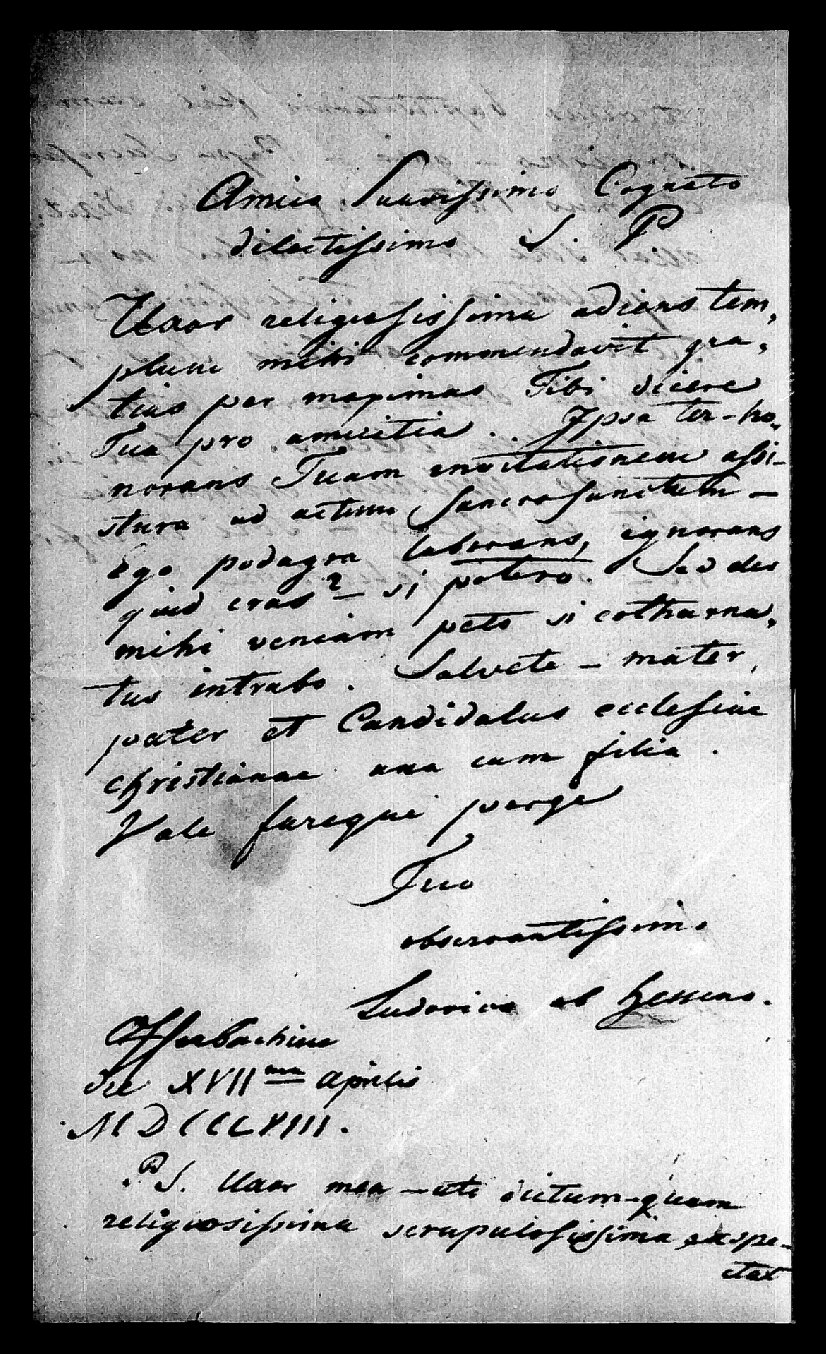 Amico Suavissimo Cognato
dilectissimo S. P
Uxor religiosissima adiens tem,
plum mihi commendavit gra,
tias per maximas Tibi dicere
Tua pro amicitia.. Ipsa ter-ho,
norans Tuam invitationem assi-
stura ad actum sancrosanctum -
Ego podagra laborans, ignorans
quid cras? - si potero. Sed des
mihi veniam peto si cothurna,
tus intrabo. Salvete - mater,
pater et Candidatus ecclesiae
christianae una cum filia.
Vale fareque perge
Tuo
observantissimo
Ludovico ab Hesseno.
Offenbachiae
die XVII ma Aprilis
MDCCCLVIII.
P S. Uxor mea - ut dictum - quam
religiosissima scrupulosissima exspe-
ctat